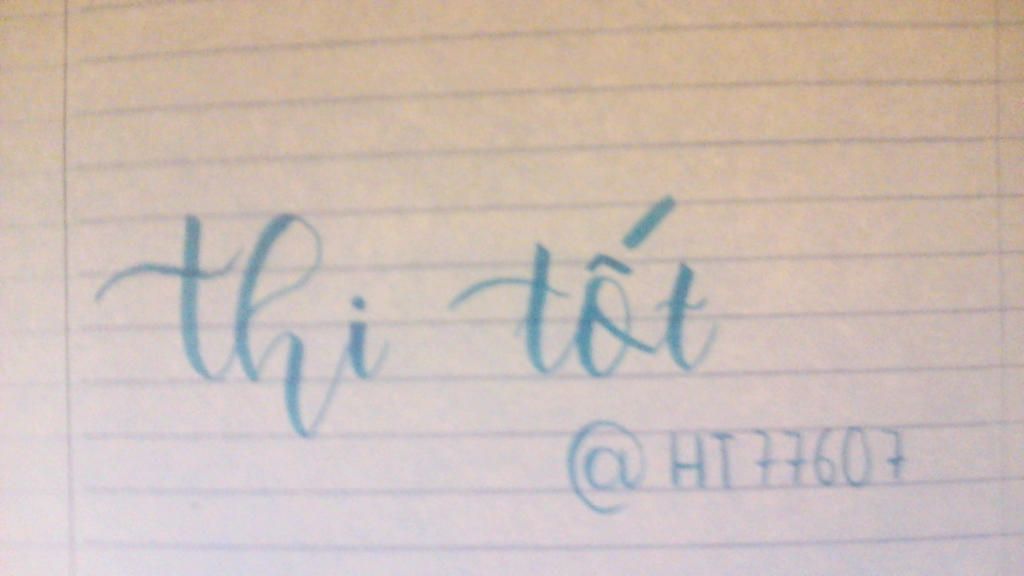 thi tốt
@HT77607